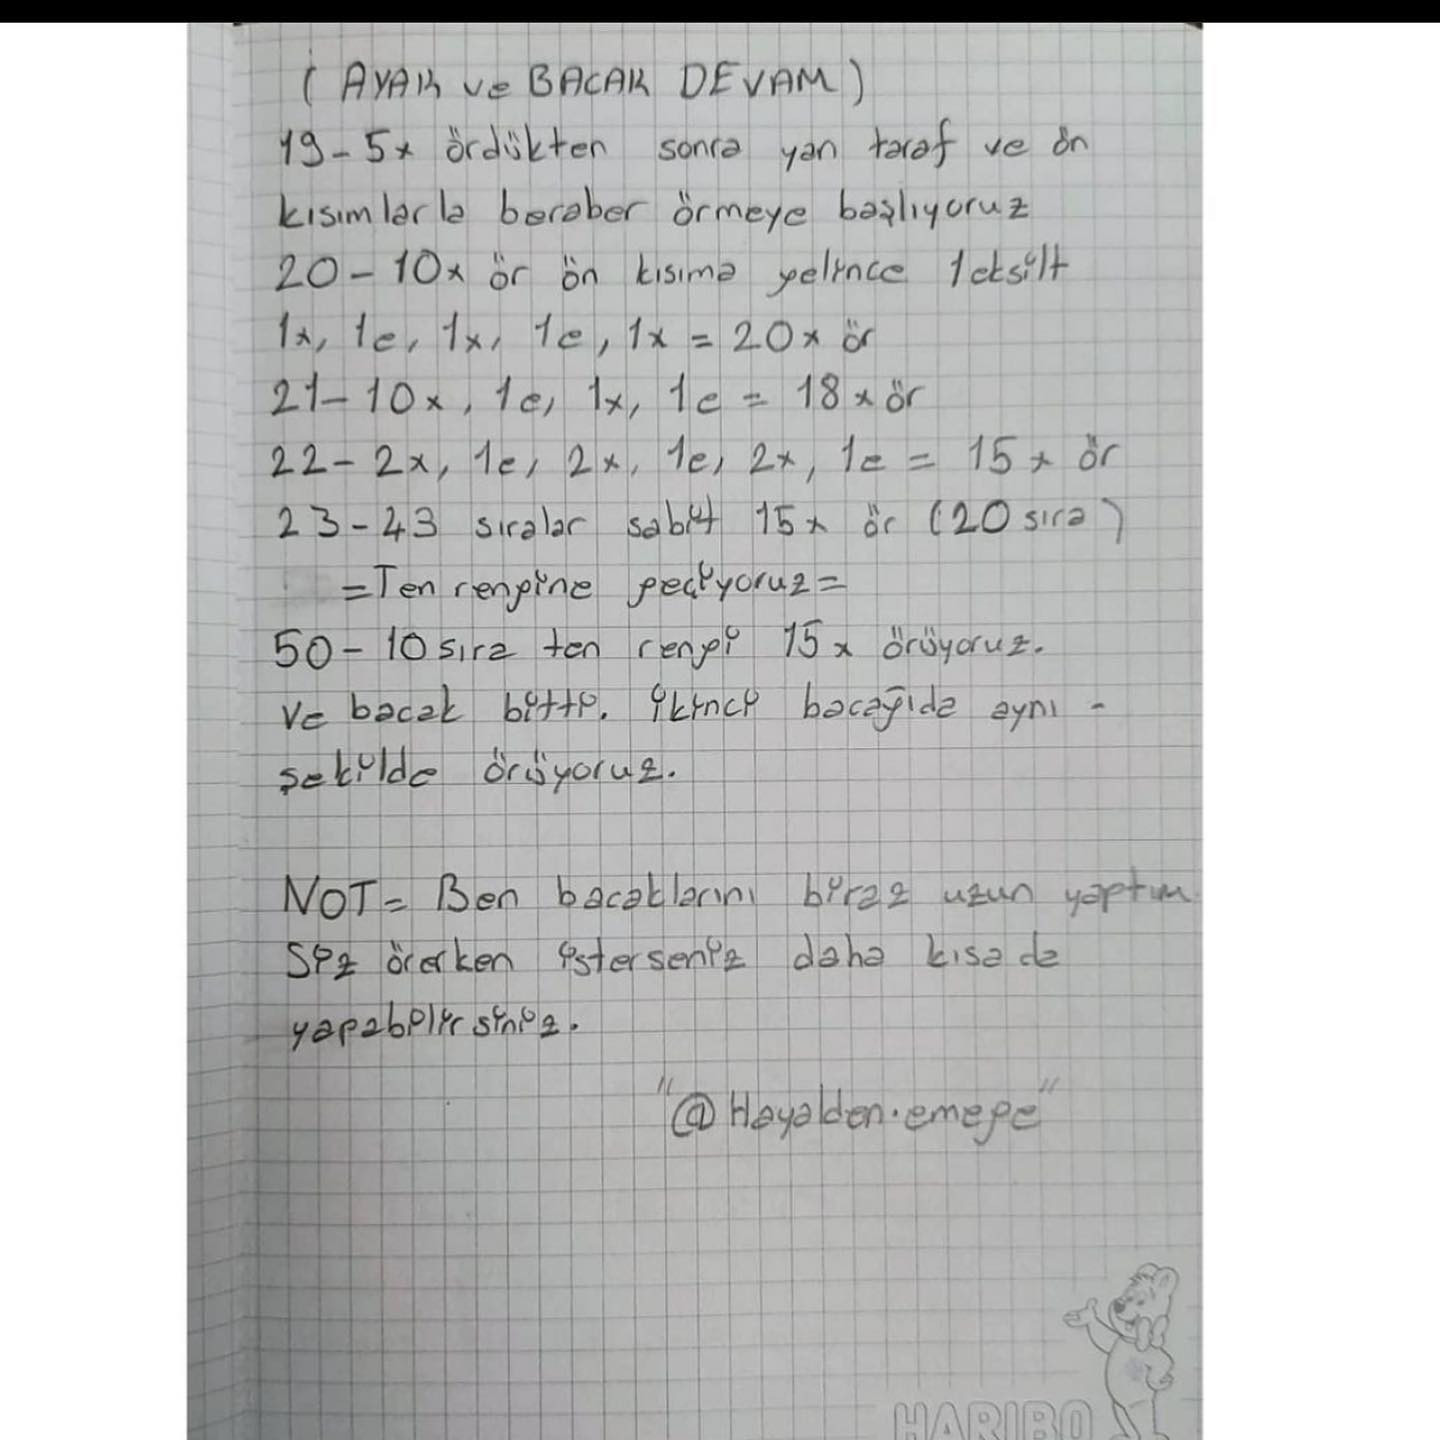 ( AYAK ve BACAK DEVAM )
19-5x ördükten sonra yan taraf ve ön
kısımlarla beraber örmeye başlıyoruz
20-10x ör ön kısıma gelince 1eksilt
1x, 1e, 1x, 1e, 1x = 20x ör
21-10x, 1e, 1x, 1e = 18x ör
22-2x, 1e, 2x, 1e, 2x, 1e = 15x ör
23-43 sıralar sabit 15x ör (20 sıra)
=Ten rengine geçiyoruz=
50-10 sıra ten rengi 15x örüyoruz.
Ve bacak bitti. ikinci bacağıda aynı -
şekilde örüyoruz.
NOT= Ben bacaklarını biraz uzun yaptım
Siz örerken isterseniz daha kısa da
yapabilirsiniz.
"@Hayalden.emege"
HARIBO